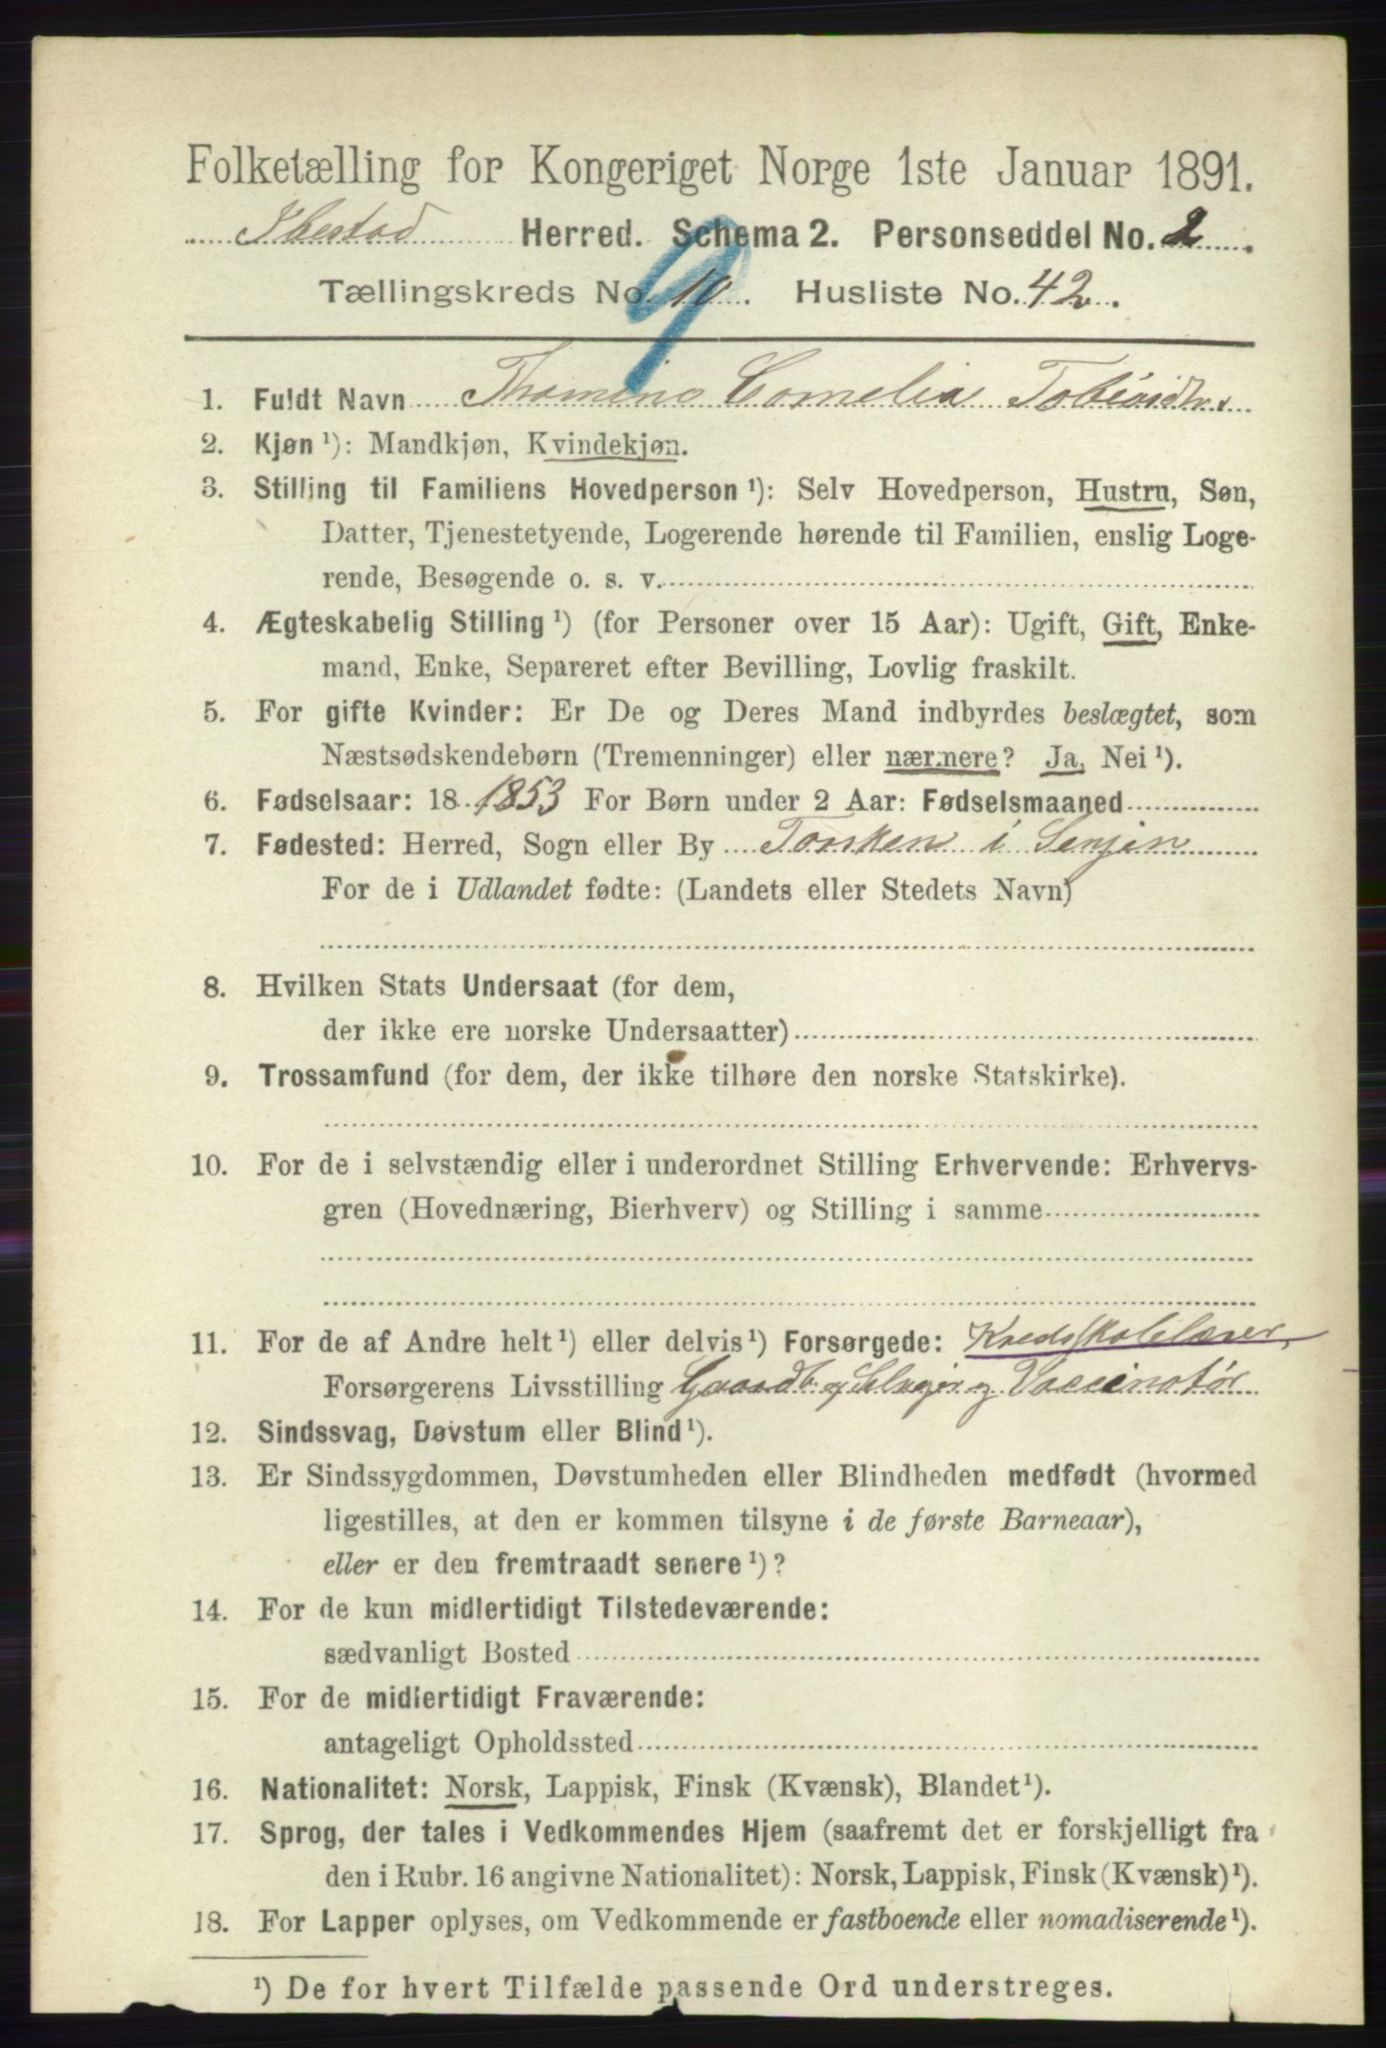 Folketælling for Kongeriget Norge 1ste Januar 1891.
Ibestad Herred. Schema 2. Personseddel No. 2
9
Tællingskreds No. 10. Husliste No. 42.
1. Fuldt Navn Thomine Cornelia Tobiasdtr.
2. Kjøn ¹): Mandkjøn, Kvindekjøn.
3. Stilling til Familiens Hovedperson ¹): Selv Hovedperson, Hustru, Søn,
Datter, Tjenestetyende, Logerende hørende til Familien, enslig Loge-
rende, Besøgende o. s. v.
4. Ægteskabelig Stilling ¹) (for Personer over 15 Aar): Ugift, Gift, Enke-
mand, Enke, Separeret efter Bevilling, Lovlig fraskilt.
5. For gifte Kvinder: Er De og Deres Mand indbyrdes beslægtet, som
Næstsødskendebørn (Tremenninger) eller nærmere? Ja, Nei ¹).
6. Fødselsaar: 18 1853 For Børn under 2 Aar: Fødselsmaaned
7. Fødested: Herred, Sogn eller By Torsken i Senjen
For de i Udlandet fødte: (Landets eller Stedets Navn)
8. Hvilken Stats Undersaat (for dem,
der ikke ere norske Undersaatter)
9. Trossamfund (for dem, der ikke tilhøre den norske Statskirke).
10. For de i selvstændig eller i underordnet Stilling Erhvervende: Erhvervs-
gren (Hovednæring, Bierhverv) og Stilling i samme
11. For de af Andre helt ¹) eller delvis ¹) Forsørgede: Kredsskolelærer,
Forsørgerens Livsstilling Gaardb. og Selvejer og Vaccinatør
12. Sindssvag, Døvstum eller Blind ¹).
13. Er Sindssygdommen, Døvstumheden eller Blindheden medfødt (hvormed
ligestilles, at den er kommen tilsyne i de første Barneaar),
eller er den fremtraadt senere ¹)?
14. For de kun midlertidigt Tilstedeværende:
sædvanligt Bosted
15. For de midlertidigt Fraværende:
antageligt Opholdssted
16. Nationalitet: Norsk, Lappisk, Finsk (Kvænsk), Blandet ¹).
17. Sprog, der tales i Vedkommendes Hjem (saafremt det er forskjelligt fra
den i Rubr. 16 angivne Nationalitet): Norsk, Lappisk, Finsk (Kvænsk) ¹).
18. For Lapper oplyses, om Vedkommende er fastboende eller nomadiserende ¹).
¹) De for hvert Tilfælde passende Ord understreges.